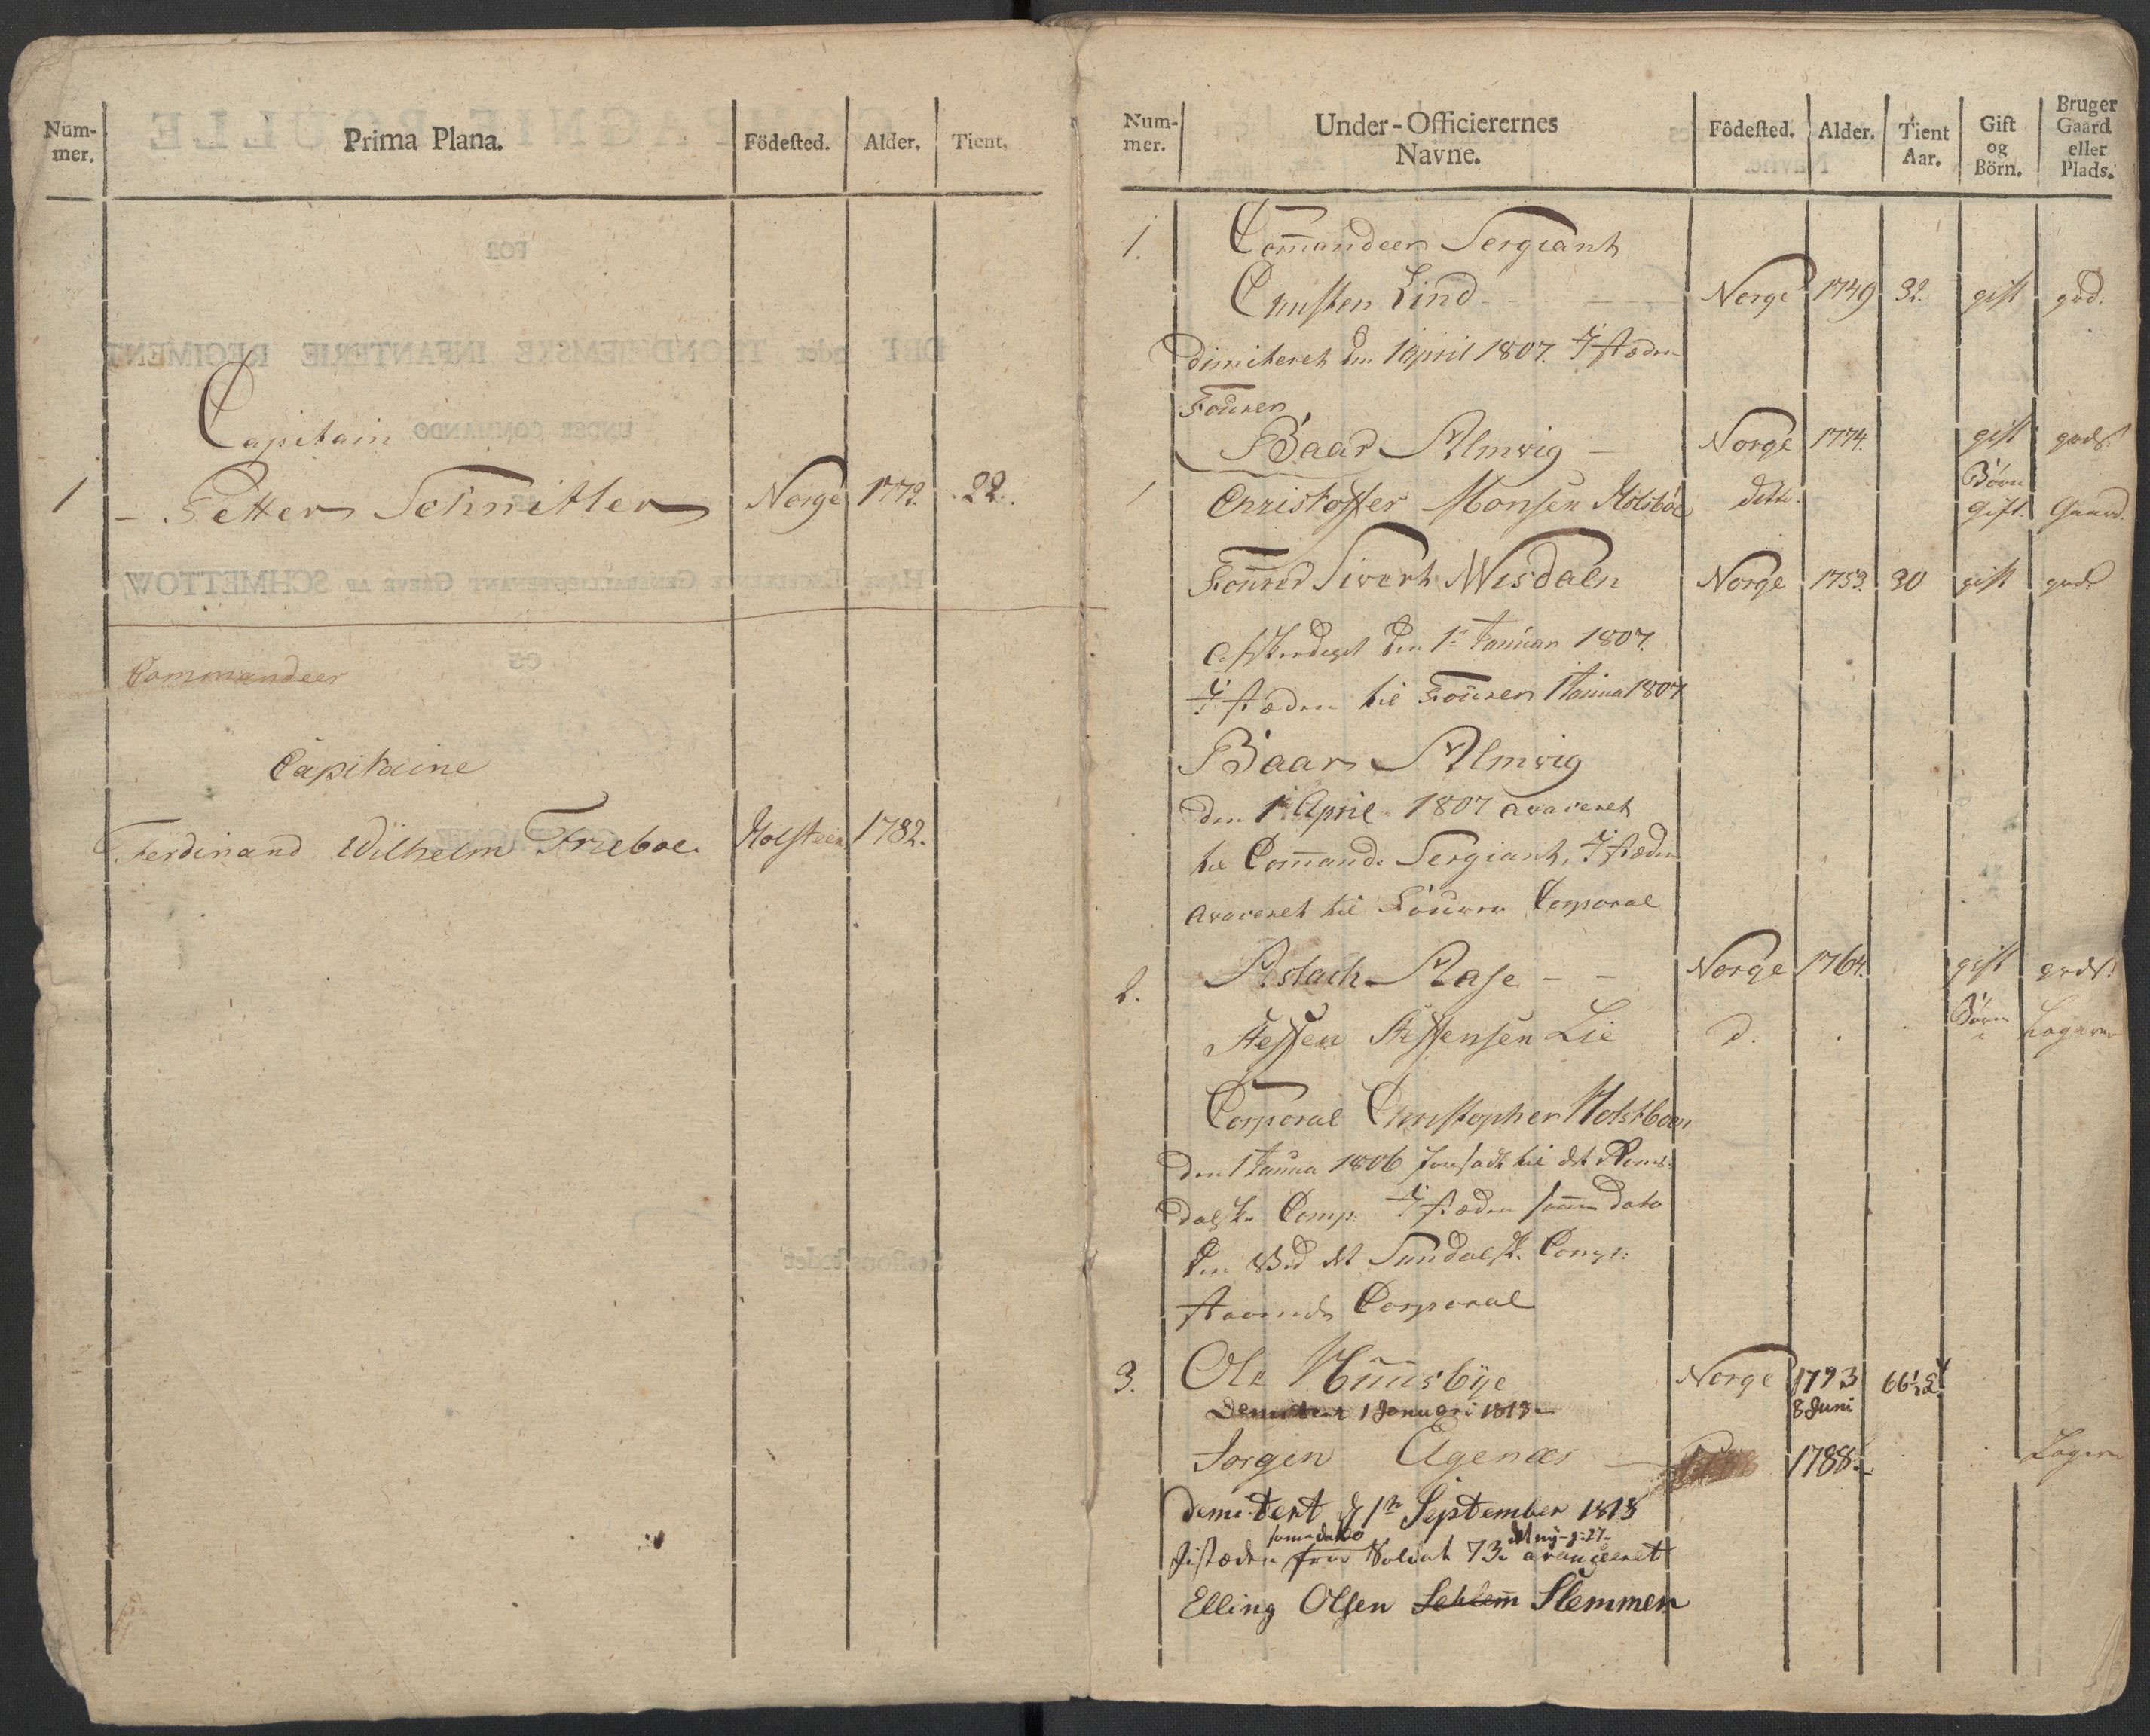 Num-
mer.
Prima Plana.
Födested.
Alder.
Tient.
Capitain
1 Petter Schnitler Norge 1772. 22.
Commandeer
Capitaine
Ferdinand Wilhelm Frieboe. Holsteen 1782.
Num-
mer.
Under-Officierernes
Navne.
Födested.
Alder.
Tient
Aar.
Gift
og
Börn.
Bruger
Gaard
eller
Plads.
1. Com̄andeer Sergiant
Christen Lind Norge 1749 32. gift
dimiteret den 1 April 1807. I stæden
Fourer
Baar Almvig Norge 1774. gift
Børn
1 Christoffer Monsen Holsböe ditto. Gift. Gaard.
Fourer Sivert Wisdaln Norge 1753. 30 gift
den 1te Januar 1807.
I stæden til Fourer 1 Janua 1807
Baar Almwig
den 1te April 1807 avaceret
til Com̄and. Sergiant, I stæden
avaceret til Corporal
2. Aslach Aase Norge 1764. gift
Steffen Steffensen Lie d. Børn
Corporal Christopher Holstboen
den 1 Janua 1806 forsadt til det Roms-
dalske Comp. I stæden samme dato
den Ved det Sundalsk. Comp:
staaende Corporal
3. Ole Huusbye Norge 1793 66½ 2
1 Januari 1818
8 Juni
Jorgen Agenæs 1788.
demitert d 1te September 1818
samedato
istæden fra Soldat 73. avangeeret
Elling Olsen Schlem̄ Slemmen